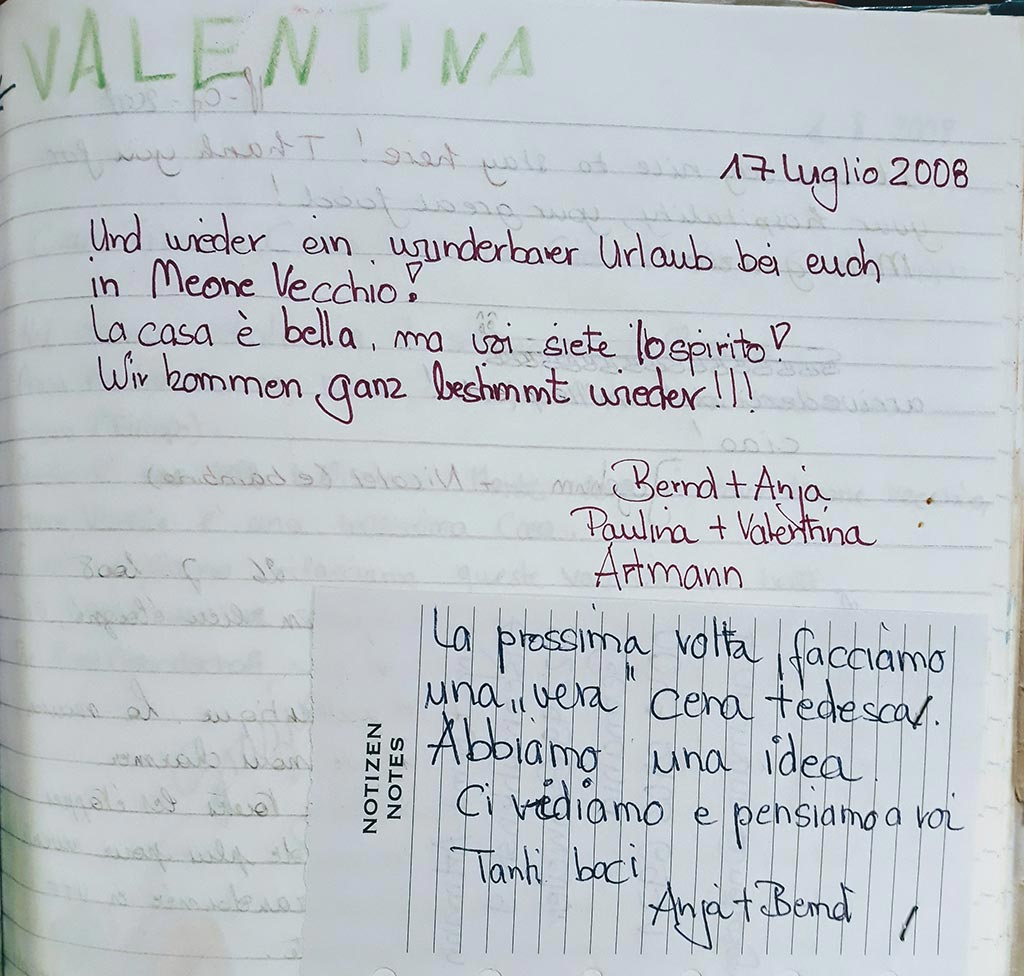 VALENTINA
17 Luglio 2008
Und wieder ein wunderbarer Urlaub bei euch
in Meone Vecchio!
La casa è bella, ma voi siete lo spirito!
Wir kommen ganz bestimmt wieder!!!
Bernd + Anja
Paulina + Valentina
Artmann
NOTIZEN
NOTES
La prossima volta, facciamo
una „vera" cena tedesca.
Abbiamo una idea.
Ci vediamo e pensiamo a voi
Tanti baci
Anja + Bernd